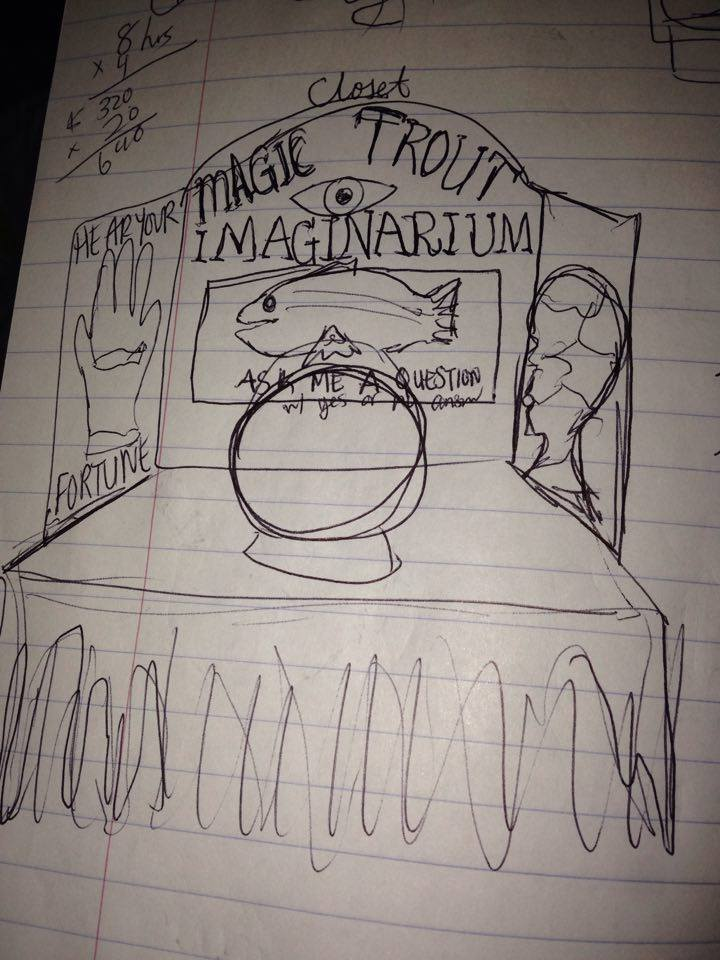 8 hrs
x 4
320
x 20
640
Closet
MAGIC TROUT
IMAGINARIUM
HEAR YOUR
FORTUNE
ASK ME A QUESTION
w/ yes or no answer